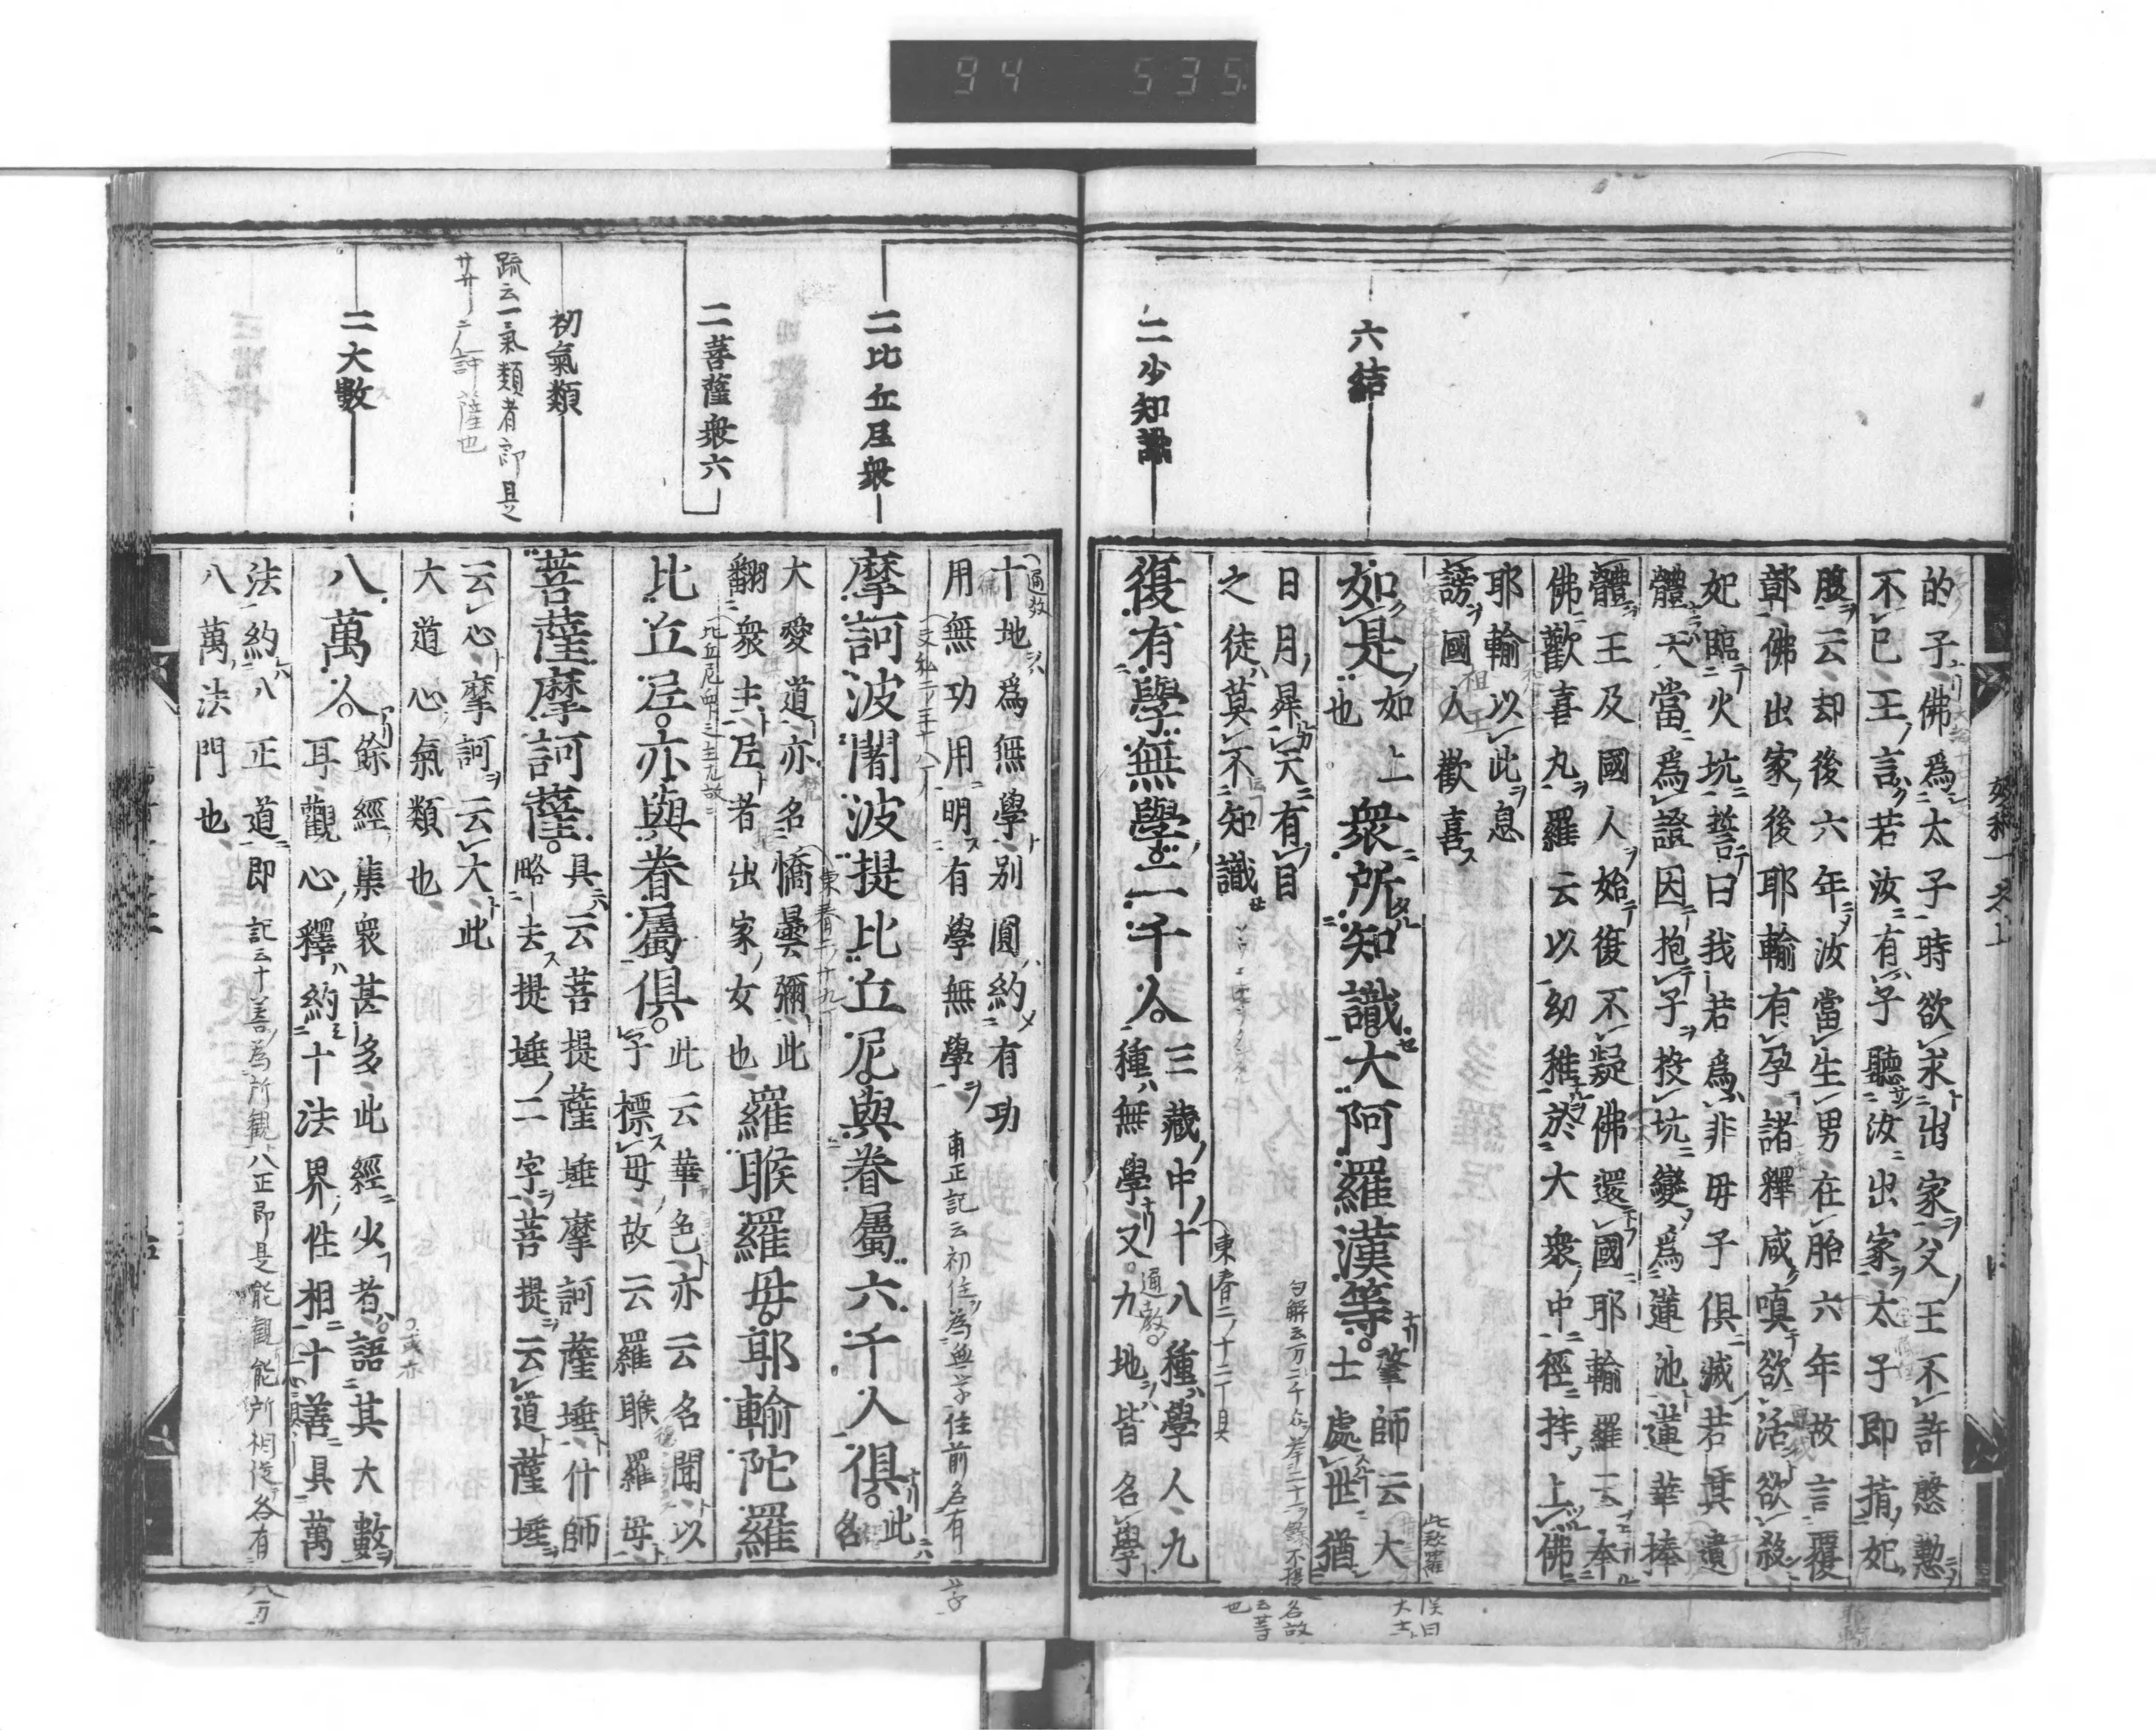 94 535
六結
二少知識
的子佛爲太子時欲求出家父王不許慇懃
不已王言若汝有子聽汝出家太子即指妃
腹云却後六年汝當生男在胎六年故言覆
鄣佛出家後耶輸有孕諸釋咸嗔欲活欲殺
妃臨火坑誓曰我若爲非母子俱滅若眞遺
體天當爲證因抱子投坑變爲蓮池蓮華捧
體王及國人始復不疑佛還國耶輸羅云奉
佛歡喜丸羅云以幼稚於大衆中徑持上佛
耶輸以此息
謗國人歡喜
如是如上
也
衆所知識大阿羅漢等肇師云大
士處世猶
日月昇天有目
之徒莫不知識
復有學無學二千人三藏中十八種學人九
種無學又九地皆名學
通教
東春二ノ十二丁具
二比丘尼衆
二菩薩衆六
初氣類
疏云一氣類者即是
二大數
十地爲無學別圓約有功
用無功用明有學無學
通教
摩訶波闍波提比丘尼與眷屬六千人俱此
名
大愛道亦名憍曇彌此
翻衆主尼者出家女也
羅睺羅母耶輸陀羅
比丘尼亦與眷屬俱此云華色亦云名聞以
子標母故云羅睺羅母
菩薩摩訶薩具云菩提薩埵摩訶薩埵什師
略去提埵二字菩提云道薩埵
云心摩訶云大此
大道心氣類也
八萬人餘經集衆甚多此經少者語其大數
耳觀心釋約十法界性相十善具萬
法約八正道即
八萬法門也
記云十善爲所観八正即是能観能所相從各有八万